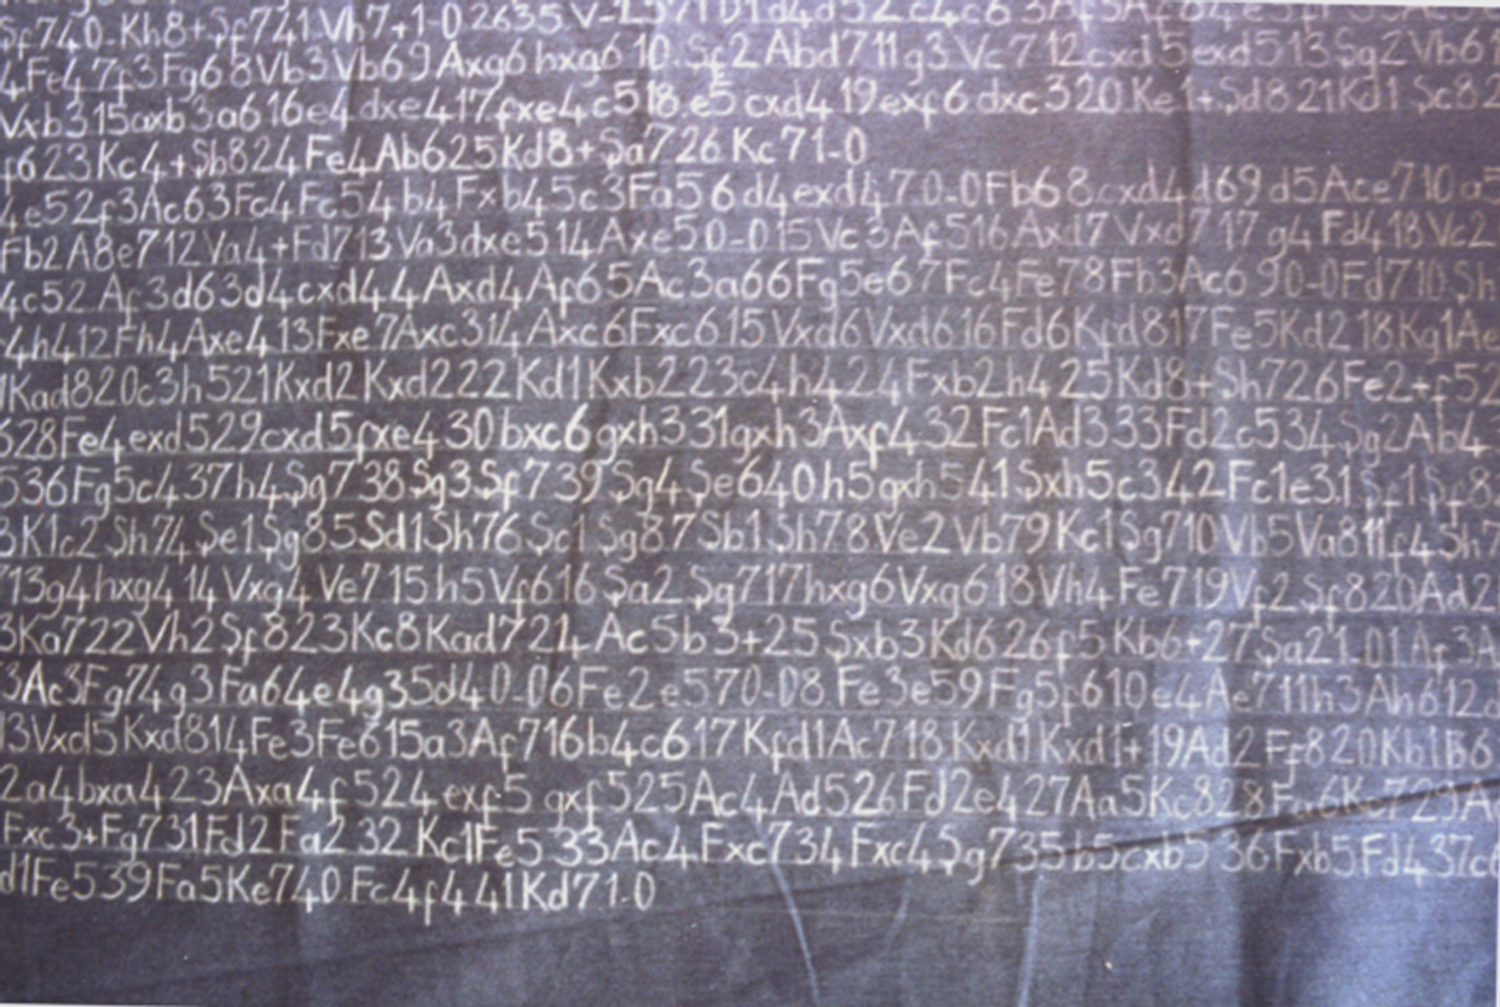 Sf740-Kh8+Sf741Vh7+1-02635V-
4Fe47f3Fg68Vb3Vb69Axg6hxg610.Sf2Abd711g3Vc712cxd5exd513Sg2Vb61
Vxb315axb3a616e4dxe417fxe4c518.e5cxd419exf6dxc320Ke1+Sd821Kd1Sc82
f623Kc4+Sb824Fe4Ab625Kd8+Sa726Kc71-0
4e52f3Ac63Fc4Fc54b4Fxb45c3Fa56d4exd470-0Fb68cxd4d69d5Ace710a5
Fb2A8e712Va4+Fd713Va3dxe514Axe50-015Vc3Af516Axd7Vxd717g4Fd418Vc2
4c52Af3d63d4cxd44Axd4Af65Ac3a66Fg5e67Fc4Fe78Fb3Ac690-0Fd710Sh
4h412Fh4Axe413Fxe7Axc314Axc6Fxc615Vxd6Vxd616Fd6Kfd817Fe5Kd218Kg1Ae
1Kad820c3h521Kxd2Kxd222Kd1Kxb223c4h424Fxb2h425Kd8+Sh726Fe2+f52
628Fe4exd529cxd5fxe430bxc6gxh331gxh3Axf432Fc1Ad333Fd2c534Sg2Ab4
536Fg5c437h4Sg738Sg3Sf739Sg4Se640h5gxh541Sxh5c342Fc1e31Sf1Sf8
3K1c2Sh74Se1Sg85Sd1Sh76Sc1Sg87Sb1Sh78Ve2Vb79Kc1Sg710Vb5Va811f4Sh7
713g4hxg414Vxg4Ve715h5Vf616Sa2Sg717hxg6Vxg618Vh4Fe719Vf2Sf820Ad2
3Ka722Vh2Sf823Kc8Kad724Ac5b3+25Sxb3Kd626f5Kb6+27Sa21.01Af3A
3Ac3Fg74g3Fa64e4g35d40-06Fe2e570-08Fe3e59Fg5f610e4Ae711h3Ah612
13Vxd5Kxd814Fe3Fe615a3Af716b4c617Kfd1Ac718Kxd1Kxd1+19Ad2Ff820Kb1b6
2a4bxa423Axa4f524exf5gxf525Ac4Ad526Fd2e427Aa5Kc828Fa6Kc729A
Fxc3+Fg731Fd2Fa232Kc1Fe533Ac4Fxc734Fxc4Sg735b5cxb536Fxb5Fd437c6
d1Fe539Fa5Ke740Fc4f441Kd71-0